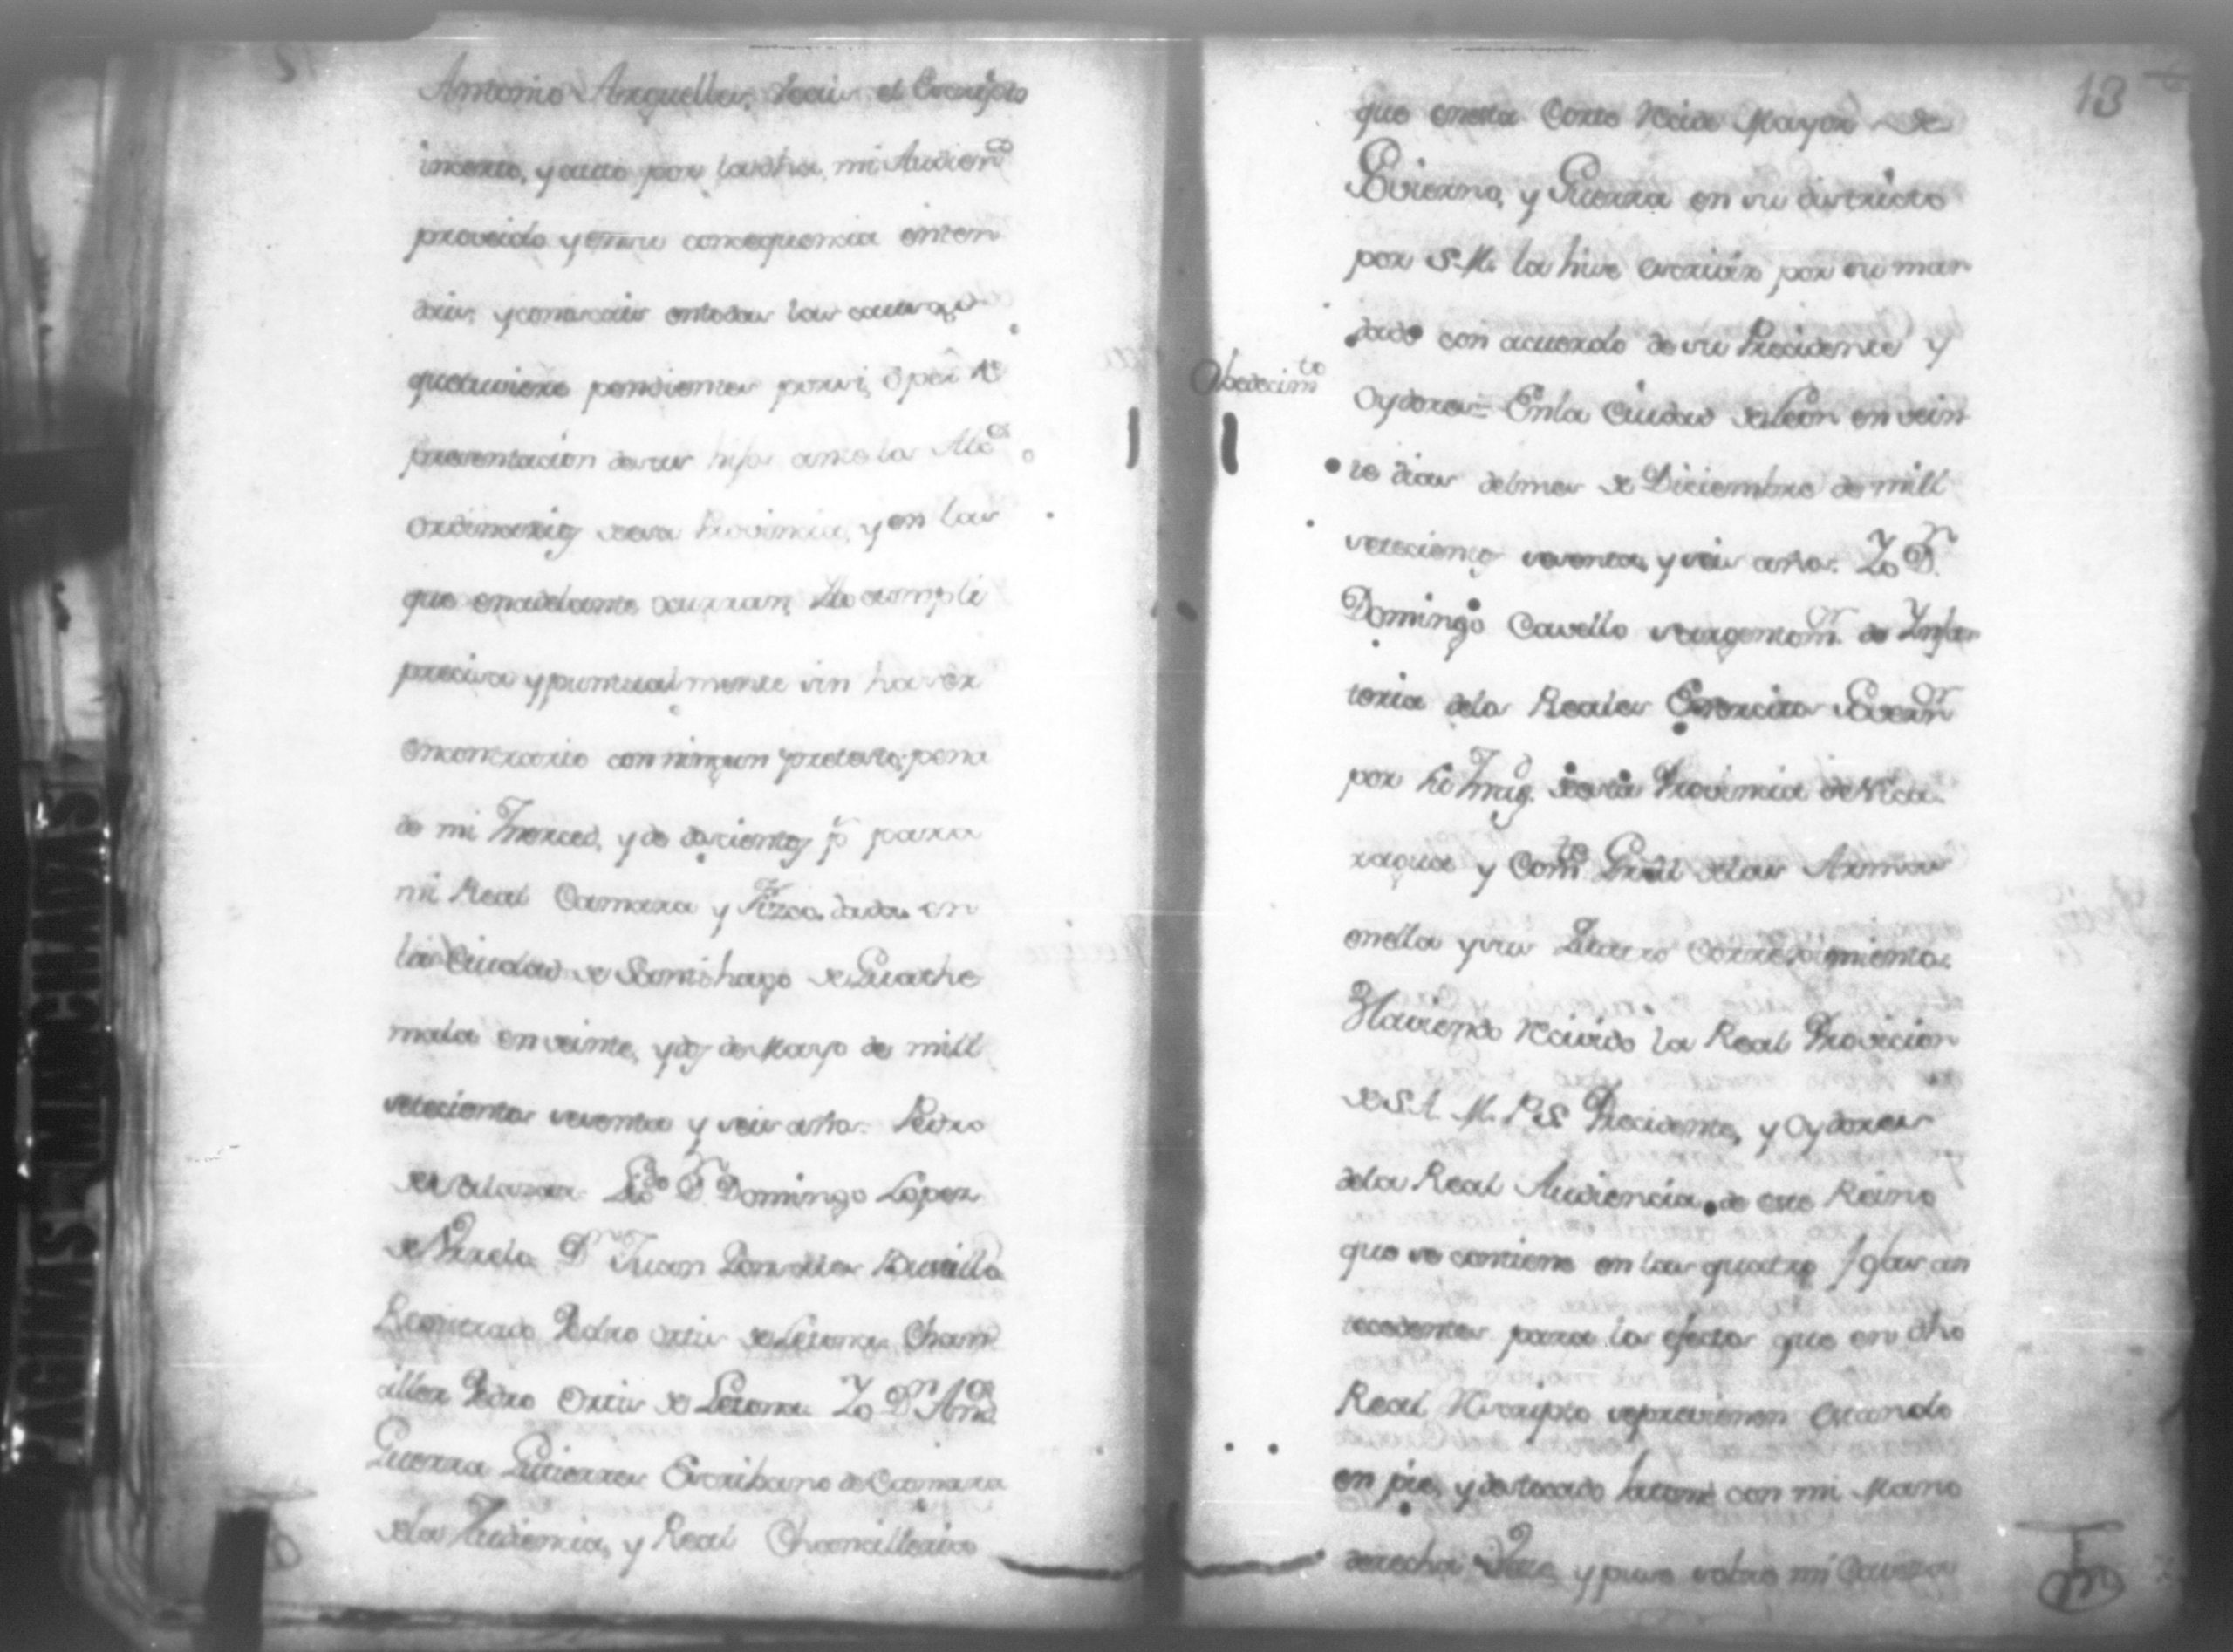 Antonio Arguelles, veais el Escripto
inserto, y auto por la dha mi Audien.ca
proveido y en su consequencia enten
dais, y conoscais en todas las causas
que tuviere pendientes por si, ô por re
presentacion de sus hijos ante los Alc.s
ordinarios de esa Provincia, y en las
que en adelante ocurran, lo cumpli
precisa y puntualmente sin haver
en contrario con ningun pretexto, pena
de mi merced, y de doscientos p.s para
mi Real Camara y Fisco. dada en
la Ciudad de Santhiago de Guathe
mala en veinte, y dos de Mayo de mill
setecientos sesenta y seis años. Pedro
de Salazar. Liz.do D.n Domingo Lopez
de Urrelo. D.n Juan Gonzalez Bustillo
Rexistrado Pedro Ortiz de Letona. Chan
ciller Pedro Ortiz de Letona. Yo D.n Ant.o
Guerra Gutierrez Escribano de Camara
de la Audiencia, y Real Chancilleria
13
que en esta Corte recide Mayor de
Govierno, y Guerra en su districto
por S. M. la hice escrivir por su man
dado con acuerdo de su Precidente y
Oydores = En la Ciudad de Leon en vein
Obedecim.to
te dias del mes de Diciembre de mill
setecientos sesenta, y seis años. Yo D.n
Domingo Cavello sargento m.or de Infan
teria de los Reales Exercitos Govern.or
por su Mag.d de esta Provincia de Nica
ragua y Com.te Gral de las Armas
en ella y sus Corregimientos.
Haviendo recivido la Real Provicion
de S. A. M. P. S. Precidente, y Oydores
de la Real Audiencia de este Reino
que se contiene en las quatro fojas an
tecedentes para los efectos que en dho
Real Rescripto se previenen estando
en pie, y destocado la tomé con mi Mano
derecha Vese, y puse sobre mi Caveza